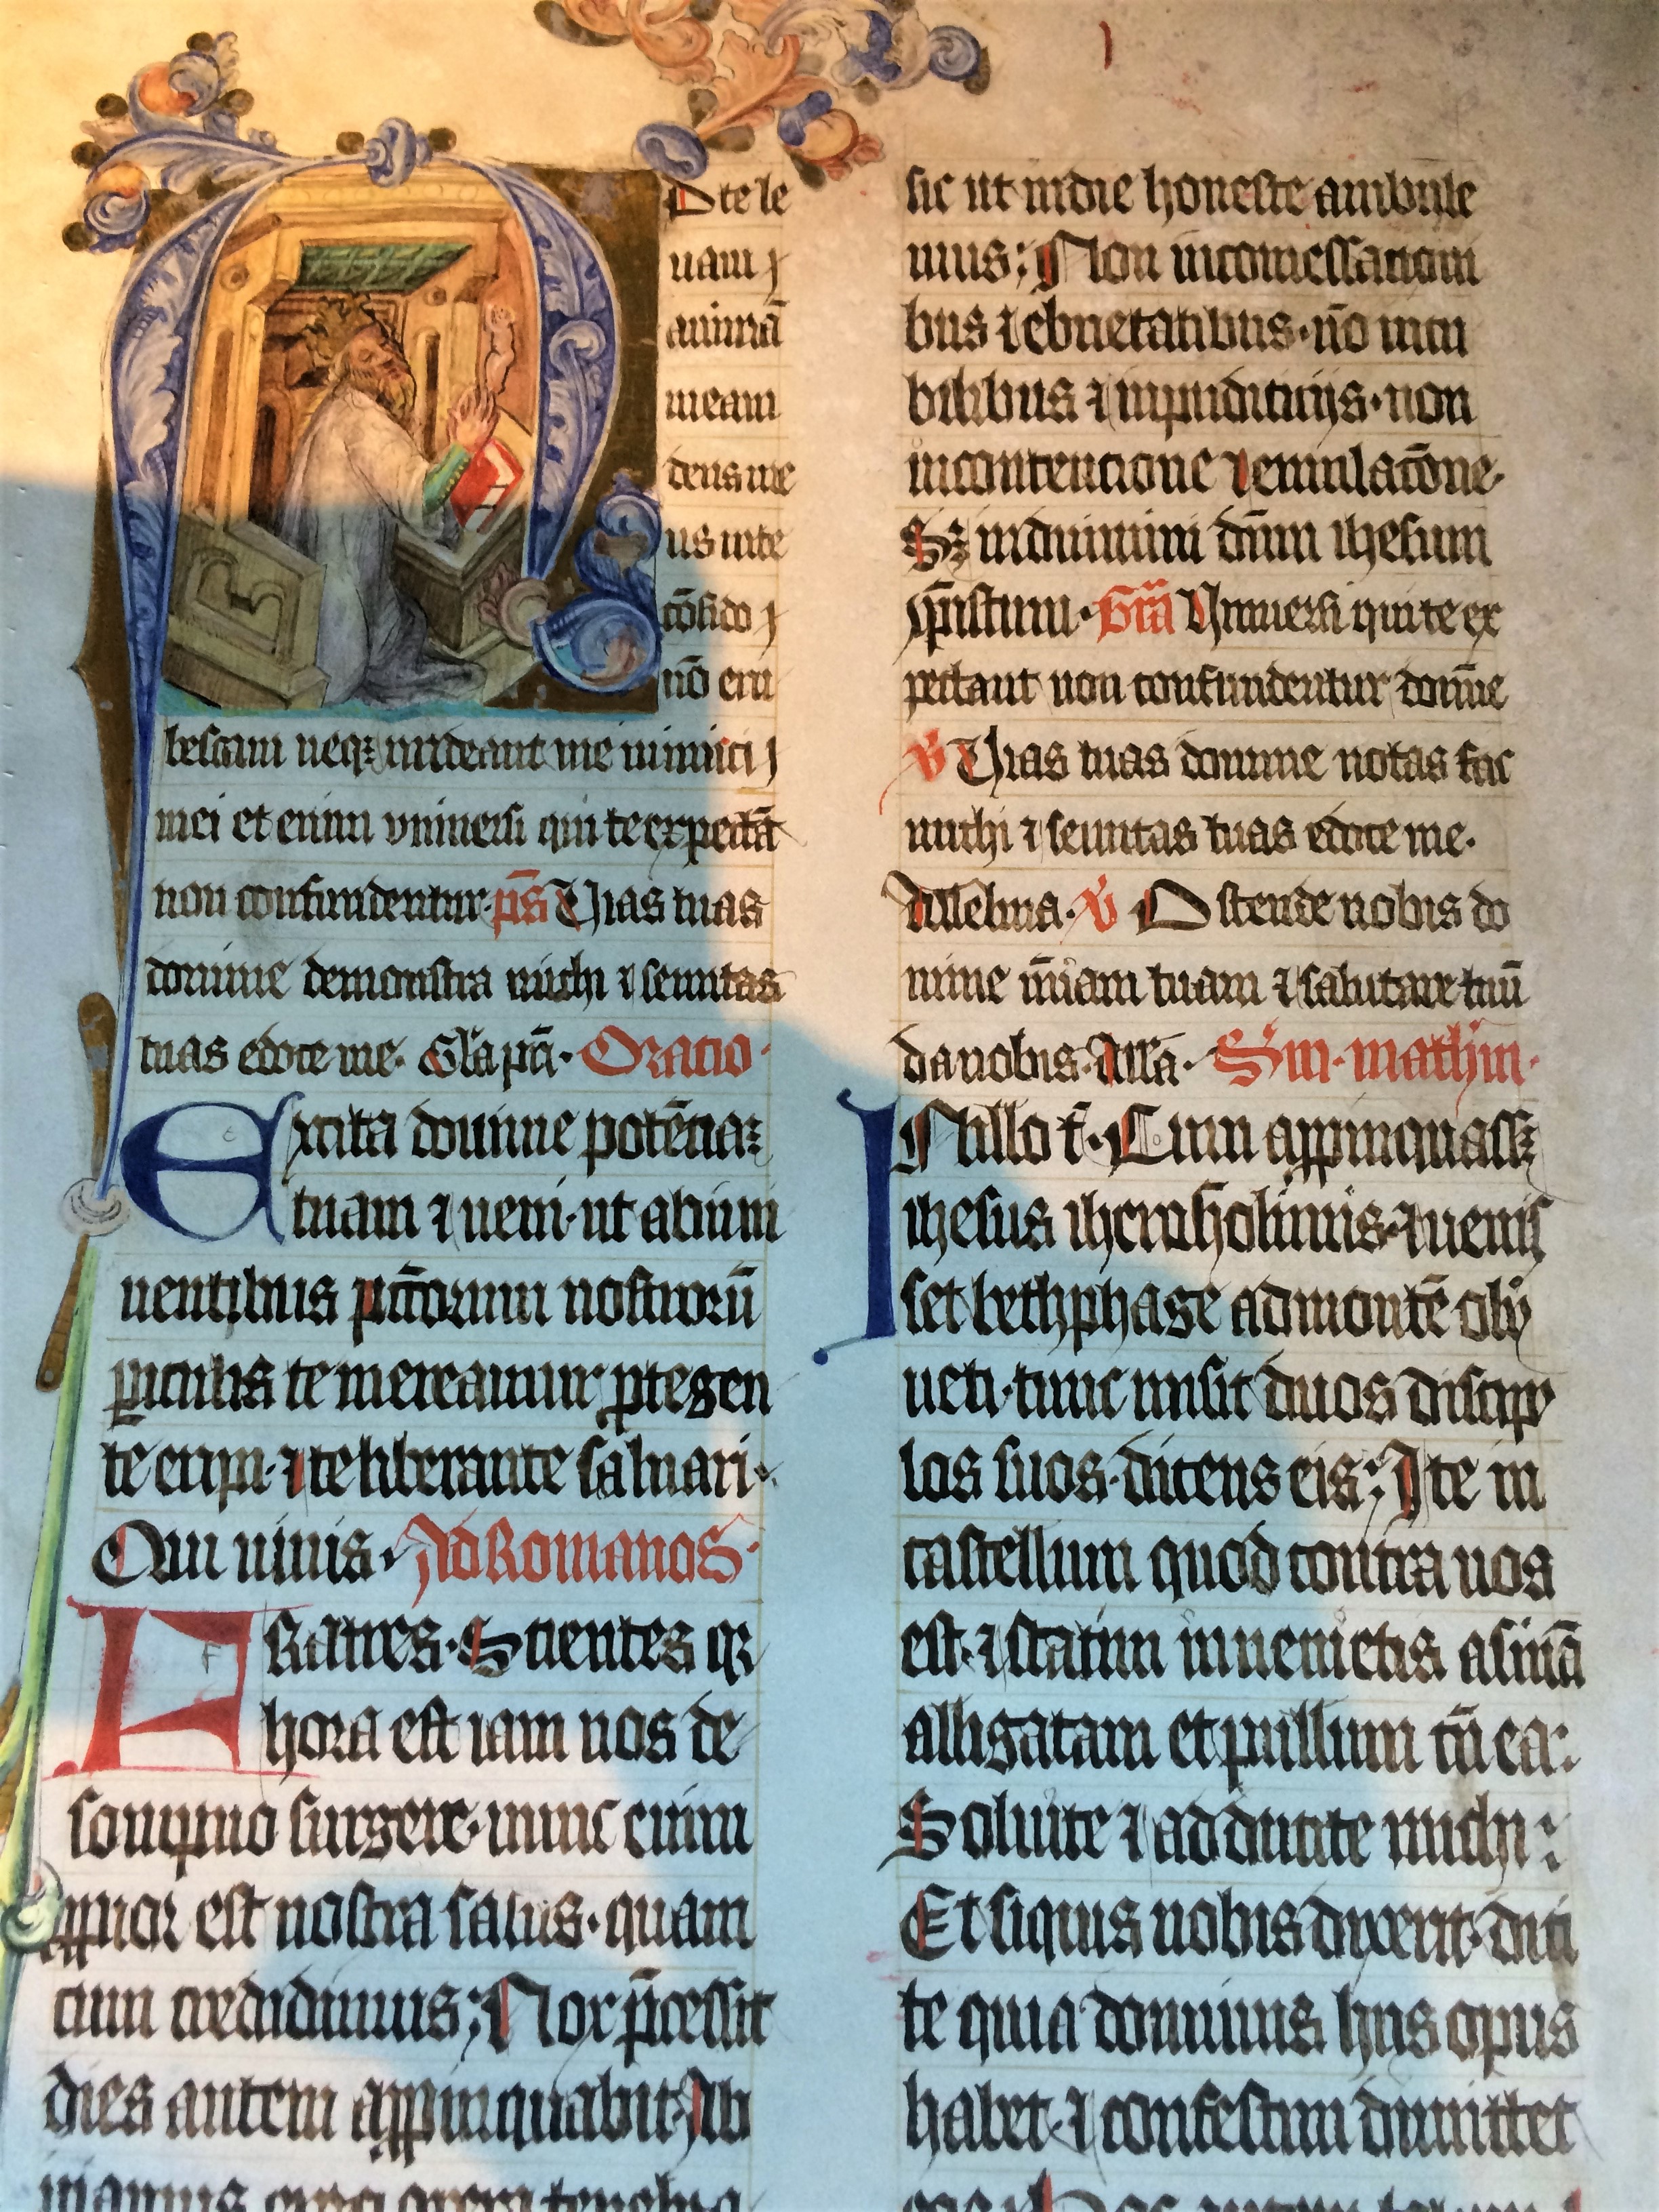 D te le
uam ⁊
animā
meam
deus me
us in te
cōfido ⁊
nō eru
bescam neqꝫ irrideant me inimici ⁊
mei et enim vniuersi qui te expectāt
non confundentur. ps̄ Vias tuas
domine demonstra michi ⁊ semitas
tuas edoce me. Gl'a pr̄i. Oracio.
Excita domine potēciaꝫ
tuam ⁊ ueni. ut ab inmi
nentibus pctōrum nostrorū
ꝑiculis te mereamur ꝓtegen
te eripi. ⁊ te liberante saluari.
Qui uiuis. Ad Romanos.
FRatres. Scientes qꝛ
hora est iam nos de
sompno surgere. nunc enim
ꝓpior est nostra salus. quam
cum credidimus; Nox p̄cessit
dies autem appinquabit. Ab
iciamus ergo opera tenebra
sic ut in die honeste ambule
mus; Non in comessacioni
bus ⁊ ebrietatibus. nō in cu
bilibus ⁊ inpudicicijs. non
in contencione ⁊ emulacōne.
Sꝫ induimini dn̄m ihesum
xp̄istum. Gra Vniuersi qui te ex
pectant non confundentur domīe
V Vias tuas domine notas fac
michi ⁊ semitas tuas edoce me.
Alleluia. V Ostende nobis do
mine mīam tuam ⁊ salutare tuū
da nobis. All'a. Sm. mathm.
IN illo t̄. Cum appinquassꝫ
ihesus iherosolimis. ⁊ uenis
set bethphage ad montē oly
ueti. tunc misit duos discipu
los suos. dicens eis; Ite in
castellum quod contra uos
est. ⁊ statim inuenietis asinā
alligatam et pullum cū ea:
Soluite ⁊ adducite michi:
Et siquis uobis dixerit. dici
te quia dominus hiis opus
habet. ⁊ confestim dimittet